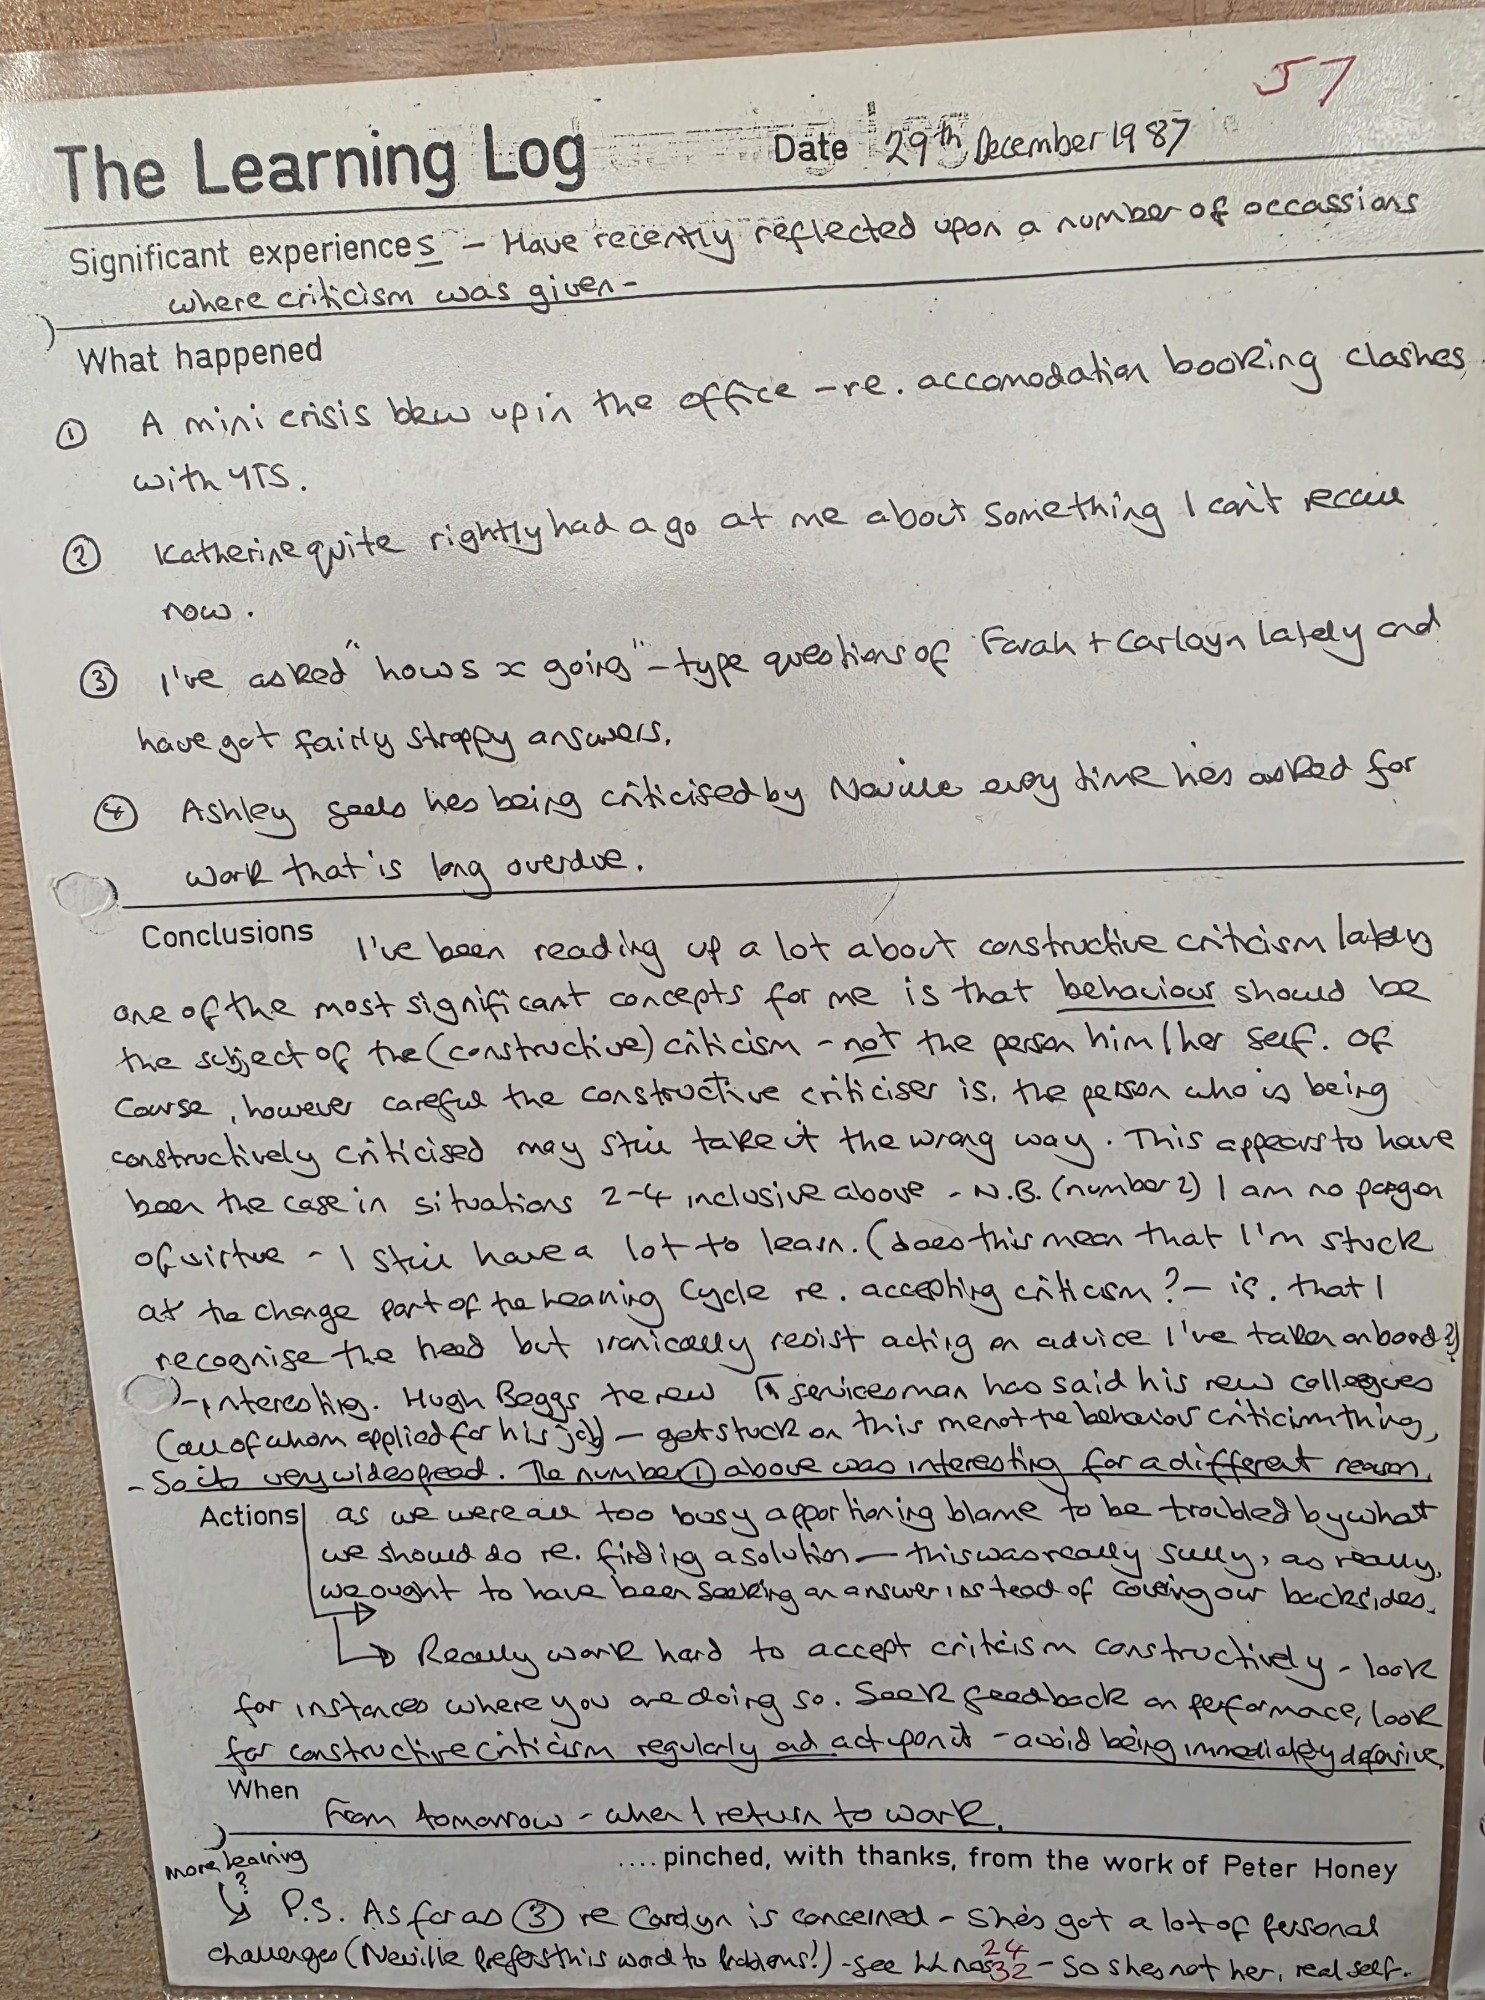 57
The Learning Log Date 29th December 1987
Significant experiences - Have recently reflected upon a number of occassions
where criticism was given -
What happened
① A mini crisis blew up in the office - re. accomodation booking clashes
with YTS.
② Katherine quite rightly had a go at me about something I can't recall
now.
③ I've asked "hows x going" - type questions of Farah + Carloyn lately and
have got fairly stroppy answers.
④ Ashley feels hes being criticised by Neville every time he's asked for
work that is long overdue.
Conclusions I've been reading up a lot about constructive criticism lately
one of the most significant concepts for me is that behaviour should be
the subject of the (constructive) criticism - not the person him/her self. Of
course, however careful the constructive criticiser is, the person who is being
constructively criticised may still take it the wrong way. This appears to have
been the case in situations 2-4 inclusive above - N.B. (number 2) I am no paragon
of virtue - I still have a lot to learn. (Does this mean that I'm stuck
at the change part of the Learning Cycle re. accepting criticism? - ie. that I
recognise the need but ironically resist acting on advice I've taken on board?)
- interesting. Hugh Beggs the new servicesman has said his new colleagues
(all of whom applied for his job) - get stuck on this me not the behaviour criticism thing,
- So its very widespread. The number ① above was interesting for a different reason,
Actions as we were all too busy apportioning blame to be troubled by what
we should do re. finding a solution - this was really silly, as really,
we ought to have been seeking an answer instead of covering our backsides.
Really work hard to accept criticism constructively - look
for instances where you are doing so. Seek feedback on performace, look
for constructive criticism regularly and act upon it - avoid being immediately defensive.
When From tomorrow - when I return to work.
more learning
?
.... pinched, with thanks, from the work of Peter Honey
P.S. As far as ③ re Carolyn is concerned - she's got a lot of personal
challenges (Neville prefers this word to Problems!) - see LL nos 24
32 - So shes not her, real self.